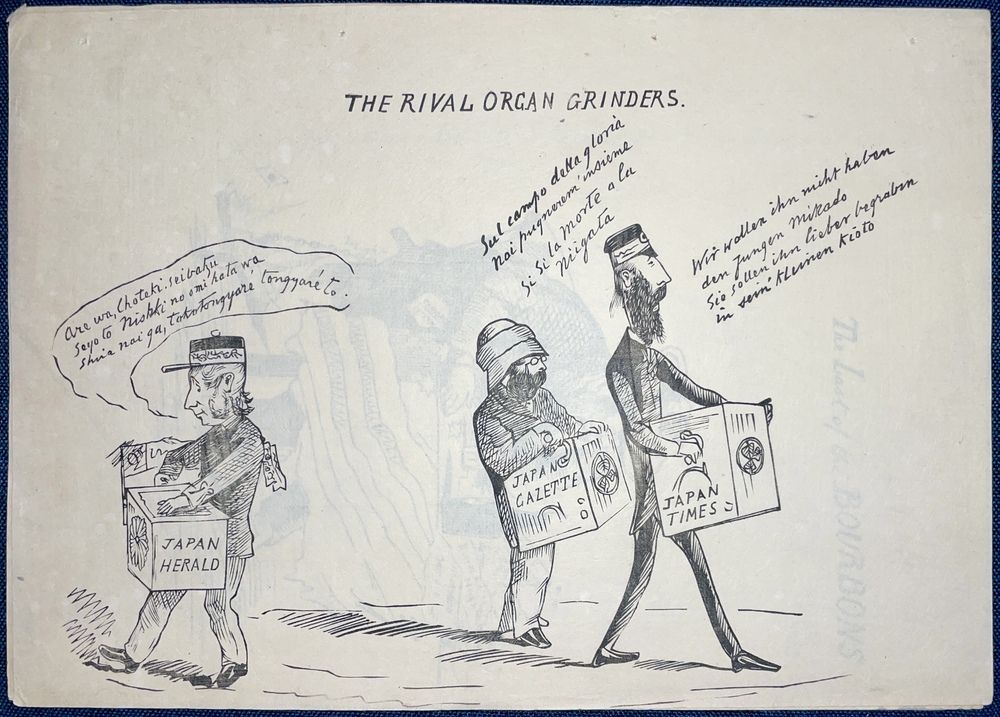 THE RIVAL ORGAN GRINDERS.
Are wa, Choteki seibatsu
Seyo to Nishki no omi hata wa
Shira nai ga, tokotongyaré tongyaré to.
Sul campo della gloria
noi pugnerem' insieme
Si Si la morte a la
Niigata
Wir wollen ihn nicht haben
den jungen Mikado
Sie sollen ihn lieber begraben
in sein kleinen Kioto
JAPAN
HERALD
JAPAN
GAZETTE
JAPAN
TIMES
The Last of the BOURBONS